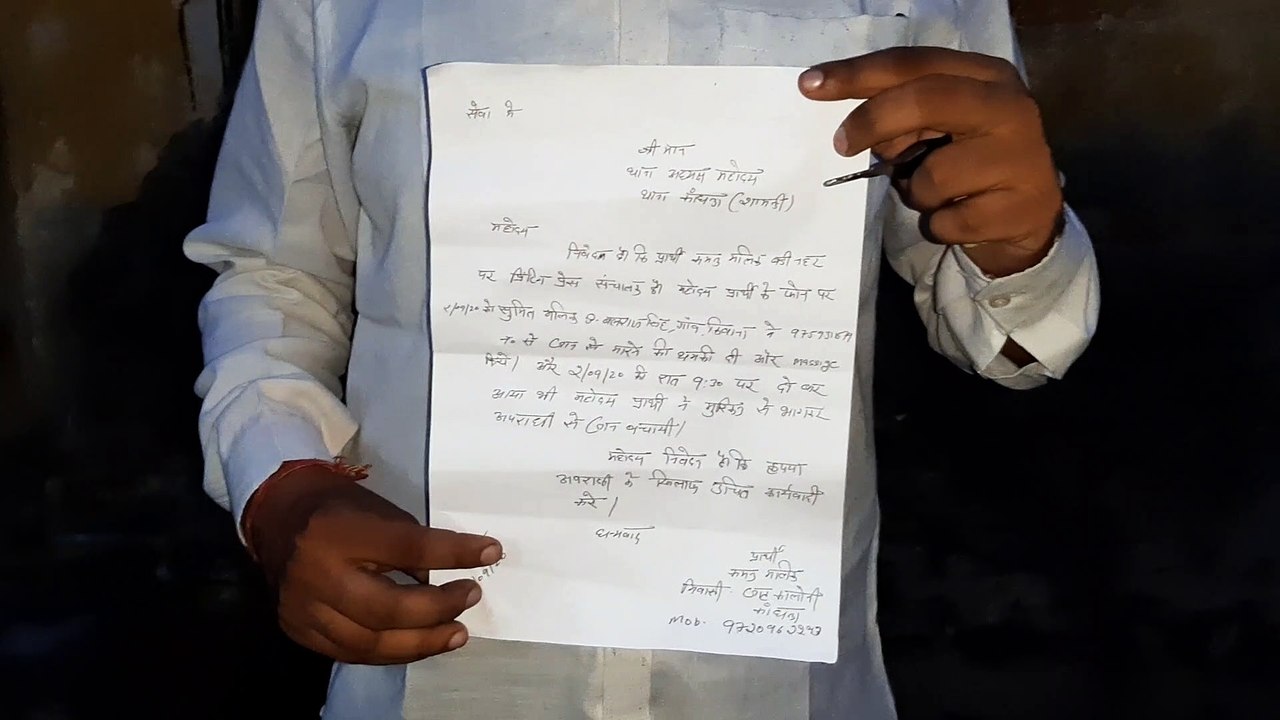 सेवा में
श्री मान
थाना अध्यक्ष महोदय
थाना काँधला (शामली)
महोदय
निवेदन है कि प्रार्थी मलिक
पर प्रिंटिंग प्रेस संचालक है। महोदय प्रार्थी के फोन पर
सुमित मलिक गांव ने
से जान से मारने की धमकी दी और massage
किये। और 2/09/20 में रात 9:30 पर
आया भी महोदय प्रार्थी ने मुश्किल से भागकर
अपराधी से जान बचायी।
महोदय निवेदन है कि कृपया
अपराधी के खिलाफ उचित कार्यवाही
करे।
धन्यवाद
प्रार्थी
मलिक
निवासी कालोनी
काँधला
Mob.